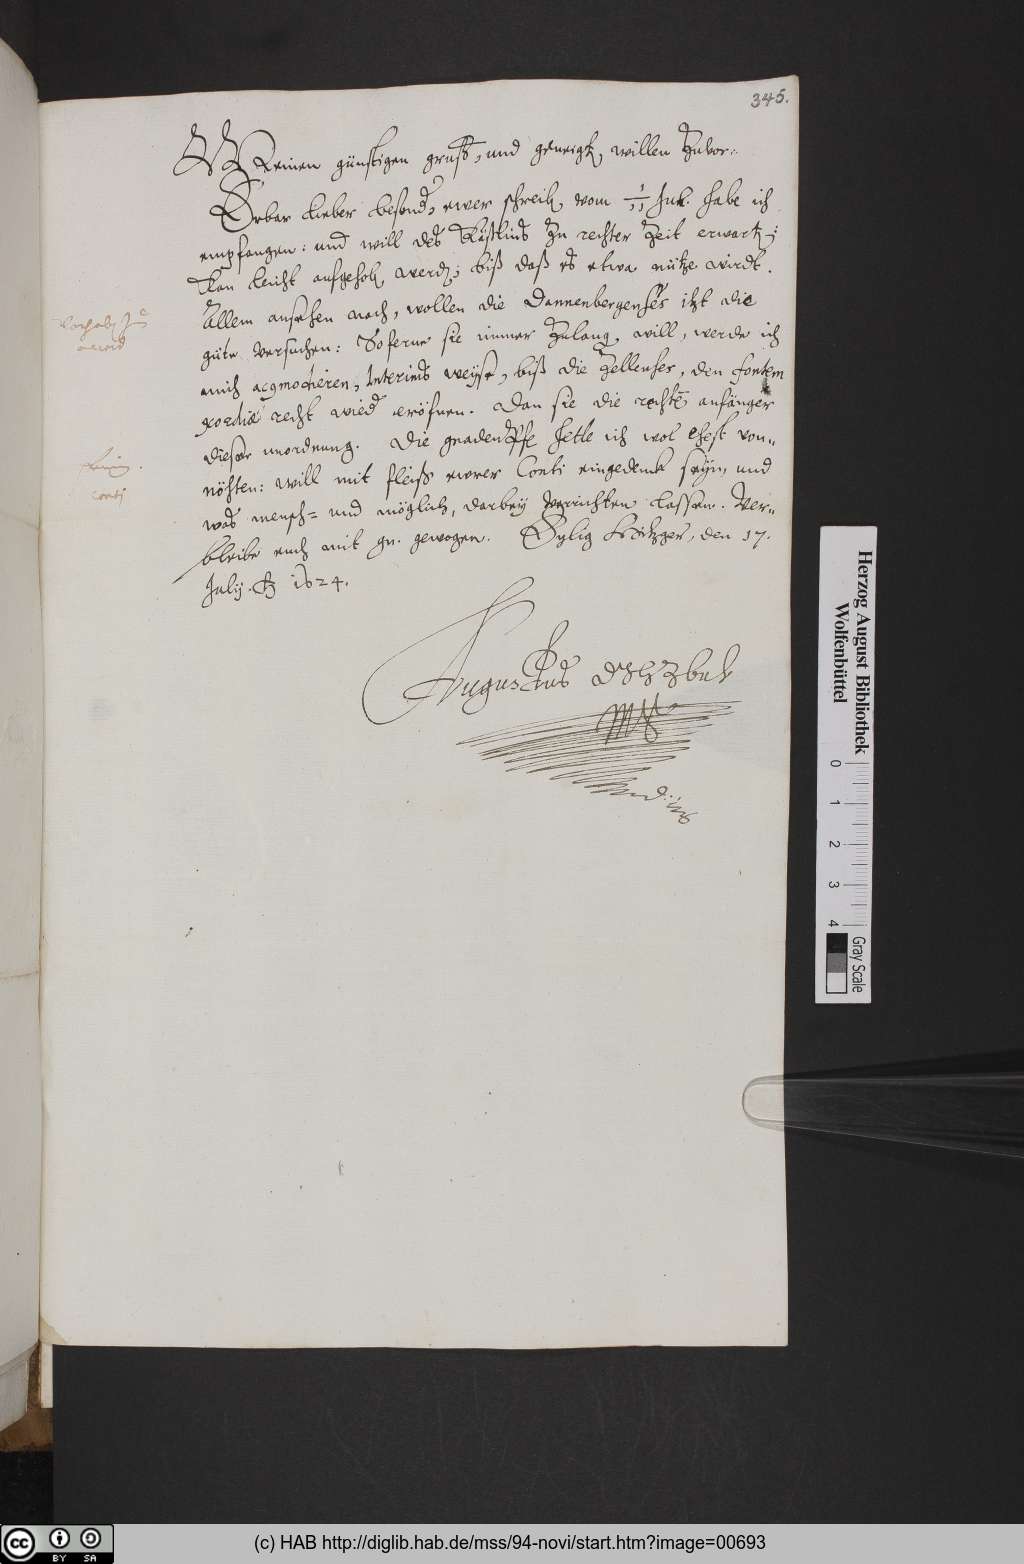 345.
Meinen günstigen gruß, und geneigt, willen zuvor.
Erbar lieber besonder, ewer schreib. vom 1/11 Jul. habe ich
empfangen: und will des Kistlins zu rechter Zeit erwart.;
kan leicht aufgehob. werd.; biß daß es etwa nütze wirdt.
Allem ansehen nach, wollen die Dannenbergenses itzt die
güte versuchen: Soferne sie immer zulang. will, werde ich
mich accmodieren, Interims weyse, biß die Zellenses, den fontem
recht wied eröfnen. Dan sie die rechte anfänger
dieser unordnung. Die gnaden hette ich wol ehest von=
nöhten: will mit fleiß ewrer Conti eingedenk seyn, und
was mensch= und möglich, darbey verrichten lassen. Ver=
bleibe euch mit gn. gewogen. Eylig Hitzger, den 17.
July. 1624.
Augustus DHZBuL
conti
Herzog August Bibliothek
Wolfenbüttel
0 1 2 3 4
Gray Scale
cc BY SA
(c) HAB http://diglib.hab.de/mss/94-novi/start.htm?image=00693